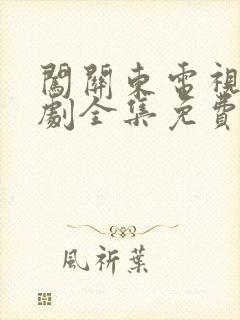 闖關東電視
劇全集免費
風祈葉